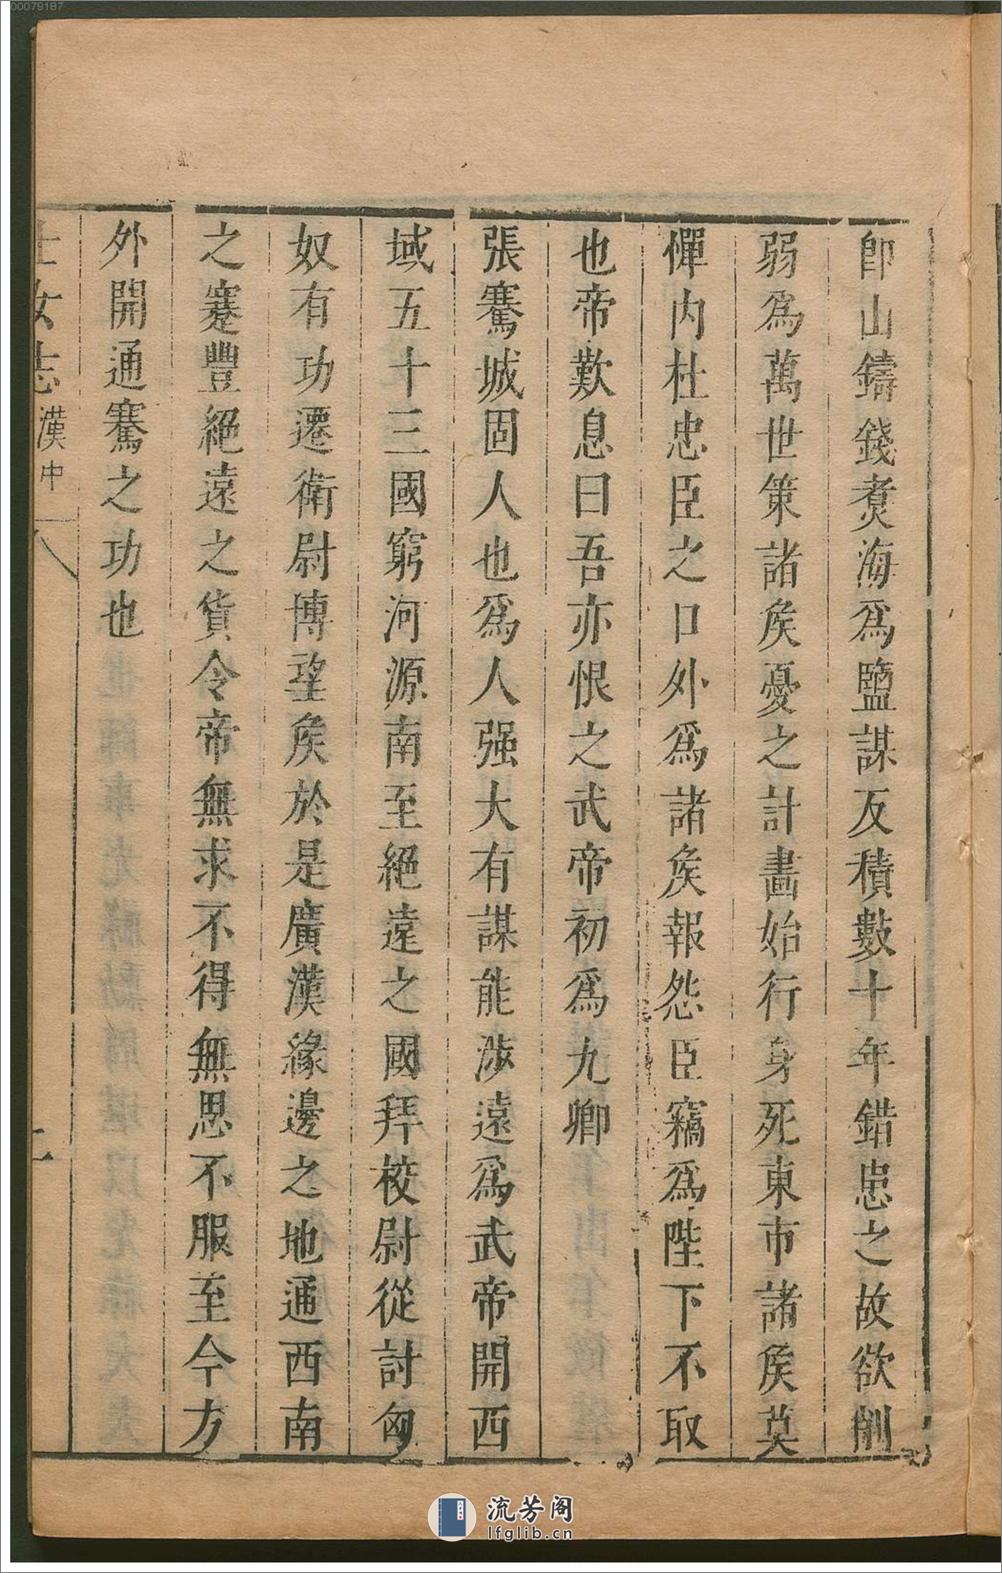 00079187
即山鑄錢煑海爲鹽謀反積數十年錯患之故欲削
弱爲萬世策諸矦憂之計畫始行身死東市諸矦莫
憚内杜忠臣之口外爲諸矦報怨臣竊爲陛下不取
也帝歎息曰吾亦恨之武帝初爲九卿
張騫城固人也爲人强大有謀能涉遠爲武帝開西
域五十三國窮河源南至絕遠之國拜校尉從討匈
奴有功遷衛尉博望矦於是廣漢緣邊之地通西南
之蹇豐絕遠之貨令帝無求不得無思不服至今方
外開通騫之功也
士女志 漢中 二
流芳阁
lfglib.cn